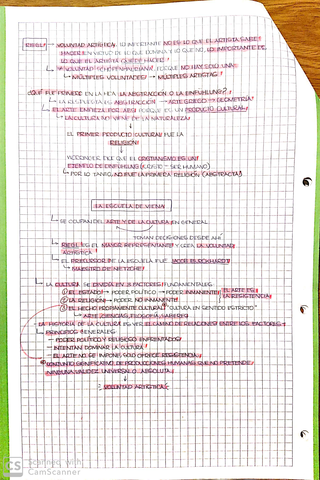 RIEGL: → VOLUNTAD ARTÍSTICA. LO IMPORTANTE NO ES LO QUE EL ARTISTA SABE
HACER EN VIRTUD DE LO QUE DOMINA Y LO QUE NO, LO IMPORTANTE ES
LO QUE EL ARTISTA QUIERE HACER!
↳ VOLUNTAD SCHOPENHAUERIANA, PORQUE NO HAY SOLO UNA
↳ MÚLTIPLES VOLUNTADES → MÚLTIPLES ARTISTAS.
¿QUÉ FUE PRIMERO EN LA HCA LA ABSTRACCIÓN O LA EINFÜHLUNG?
↳ LA RESPUESTA ES ABSTRACCIÓN → ARTE GRIEGO → GEOMETRÍA
EL ARTE ENTERO ES ABST. PORQUE ES UN PRODUCTO CULTURAL
↳ LA CULTURA NO VIENE DE LA NATURALEZA
↓
EL PRIMER PRODUCTO CULTURAL FUE LA
RELIGIÓN
↓
WORRINGER DICE QUE EL CRISTIANISMO ES UN
EJEMPLO DE EINFÜHLUNG (CRISTO = SER HUMANO)
↳ POR LO TANTO, NO FUE LA PRIMERA RELIGIÓN (ABSTRACTA)
LA ESCUELA DE VIENA
↳ SE OCUPAN DEL ARTE Y DE LA CULTURA EN GENERAL
TOMAN DECISIONES DESDE AHÍ
↳ RIEGL ES EL MAYOR REPRESENTANTE Y CREA LA VOLUNTAD
ARTÍSTICA
↳ EL PRECURSOR DE LA ESCUELA FUE JACOB BURCKHARDT
↳ MAESTRO DE NIETZSCHE
↳ LA CULTURA SE DIVIDE EN 3 FACTORES FUNDAMENTALES:
① EL ESTADO → PODER POLÍTICO → PODER INMANENTE
② LA RELIGIÓN → PODER NO INMANENTE
EL ARTE ES
LA RESISTENCIA
③ EL HECHO PROPIAMENTE CULTURAL "CULTURA EN SENTIDO ESTRICTO"
↳ ARTE, CIENCIAS, FILOSOFÍA, SABERES
LA HISTORIA DE LA CULTURA ES VER EL CAMINO DE RELACIONES ENTRE LOS FACTORES
↳ PRINCIPIOS GENERALES
- PODER POLÍTICO Y RELIGIOSO ENFRENTADOS
- INTENTAN DOMINAR LA CULTURA
- EL ARTE NO SE IMPONE, SOLO OFRECE RESISTENCIA
CONJUNTO SIGNIFICATIVO DE PRODUCCIONES HUMANAS QUE NO PRETENDE
NINGUNA VALIDEZ UNIVERSAL O ABSOLUTA
↓
VOLUNTAD ARTÍSTICA
CS Scanned with
CamScanner